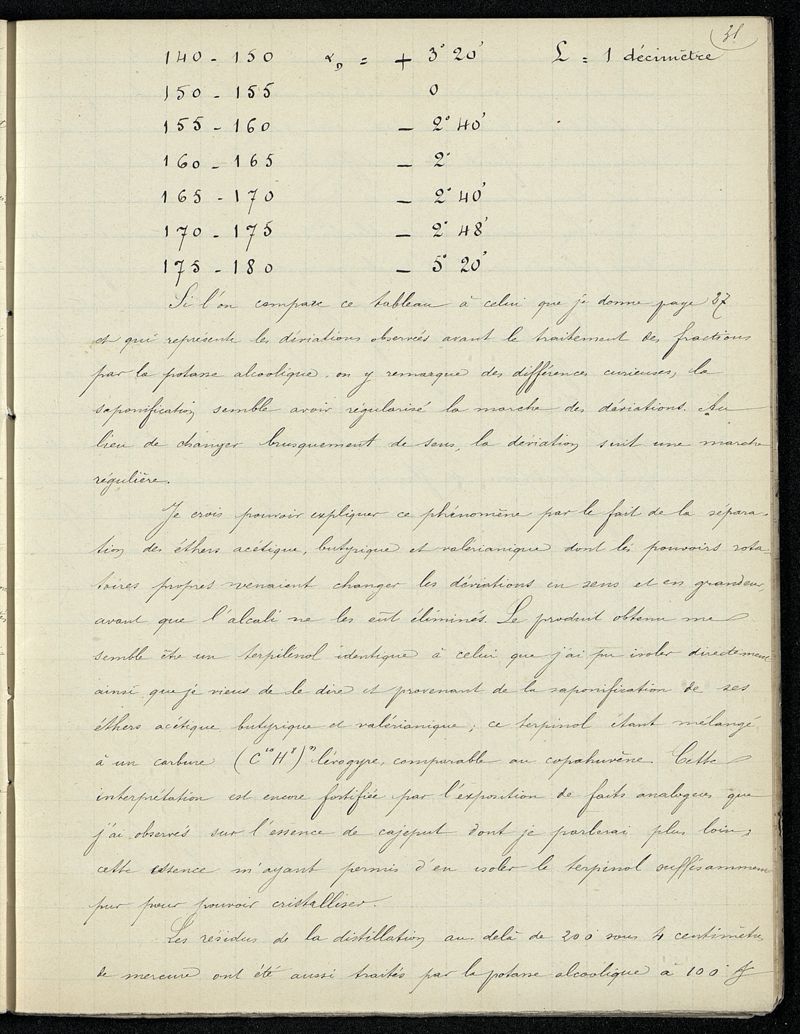 31
140 - 150 α_D = + 3° 20' L = 1 décimètre
150 - 155 0
155 - 160 - 2° 40'
160 - 165 - 2°
165 - 170 - 2° 40'
170 - 175 - 2° 48'
175 - 180 - 5° 20'
Si l'on compare ce tableau à celui que je donne page 27
et qui représente les déviations observées avant le traitement des fractions
par la potasse alcoolique. on y remarque des différences curieuses, la
saponification semble avoir régularisé la marche des déviations. Au
lieu de changer brusquement de sens, la déviation suit une marche
régulière.
Je crois pouvoir expliquer ce phénomène par le fait de la sépara-
tion des éthers acétique, butyrique et valérianique dont les pouvoirs rota-
toires propres venaient changer les déviations en sens et en grandeur,
avant que l'alcali ne les eût éliminés. Le produit obtenu me
semble être un terpilenol identique à celui que j'ai pu isoler directement
ainsi que je viens de le dire et provenant de la saponification de ses
éthers acétique butyrique et valérianique; ce terpinol étant mélangé
à un carbure (C¹⁰H⁸)ⁿ lévogyre, comparable au copahuvène. Cette
interprétation est encore fortifiée par l'exposition de faits analogues que
j'ai observés sur l'essence de cajeput dont je parlerai plus loin,
cette essence m'ayant permis d'en isoler le terpinol suffisamment
pur pour pouvoir cristalliser.
Les résidus de la distillation au delà de 200° sous 4 centimètres
de mercure ont été aussi traités par la potasse alcoolique à 100°